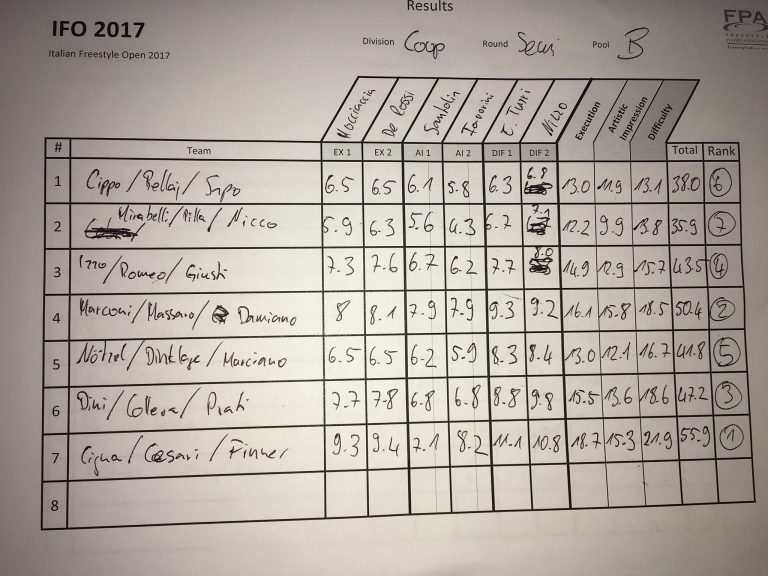 Results
IFO 2017
Italian Freestyle Open 2017
FPA
Division Coop Round Semi Pool B
Nocciaccia De Rossi Santolin Favorini E. Turri Nizzo Execution Artistic Impression Difficulty
# Team EX 1 EX 2 AI 1 AI 2 DIF 1 DIF 2 Total Rank
1 Cippo/Pellaj/Sapo 6.5 6.5 6.1 5.8 6.3 6.8 13.0 11.9 13.1 38.0 6
2 Mirabelli/Pilla/Nicco 5.9 6.3 5.6 4.3 6.7 7.1 12.2 9.9 13.8 35.9 7
3 Izzo/Romeo/Giusti 7.3 7.6 6.7 6.2 7.7 8.0 14.9 12.9 15.7 43.5 4
4 Marconi/Massaro/Damiano 8 8.1 7.9 7.9 9.3 9.2 16.1 15.8 18.5 50.4 2
5 Nötzel/Dinklage/Marciano 6.5 6.5 6.2 5.9 8.3 8.4 13.0 12.1 16.7 41.8 5
6 Dini/Collera/Prati 7.7 7.8 6.8 6.8 8.8 9.8 15.5 13.6 18.6 47.2 3
7 Cigna/Cesari/Finner 9.3 9.4 7.1 8.2 11.1 10.8 18.7 15.3 21.9 55.9 1
8